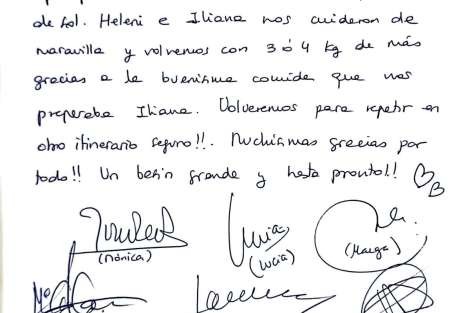 de sol. Heleni e Iliana nos cuidaron de
maravilla y volvemos con 3 ó 4 kg de más
gracias a la buenísima comida que nos
preparaba Iliana. Volveremos para repetir en
otro itinerario seguro!!. Muchísmas gracias por
todo!! Un besin grande y hasta pronto!!
(Mónica) (Lucía) (Marga)